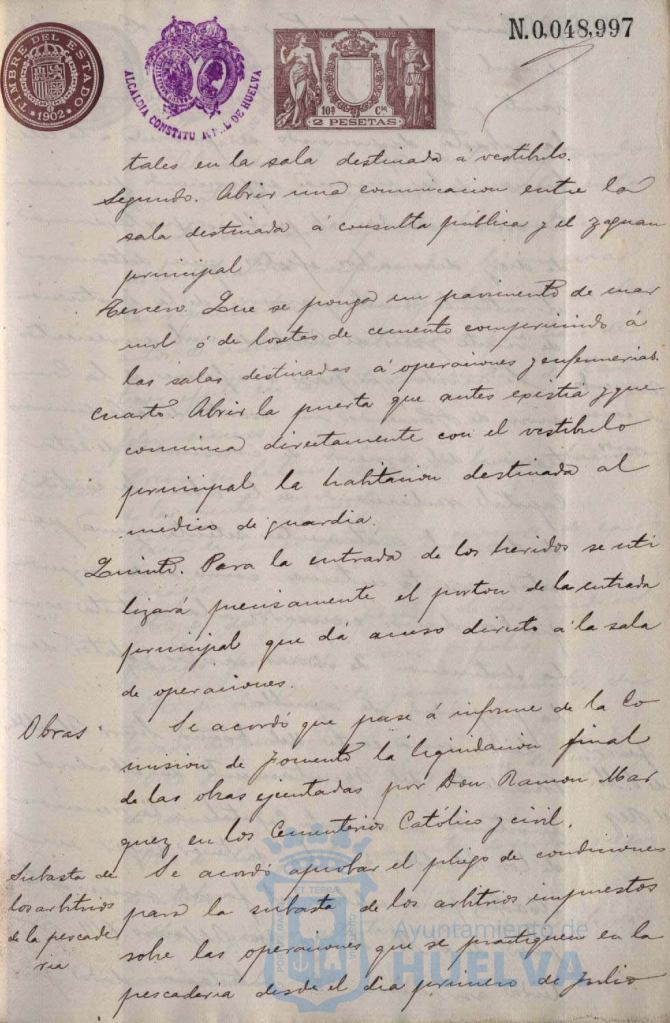 TIMBRE DEL ESTADO
1902
ALCALDIA CONSTITUCIONAL DE HUELVA
AÑO 1902
10ª Cse
2 PESETAS
N.0.048,997
tales en la sala destinada á vestíbulo.
Segundo. Abrir una comunicacion entre la
sala destinada á consulta publica y el zaguan
principal
Tercero. Que se ponga un pavimento de mar
mol ó de losetas de cemento comprimido á
las salas destinadas á operaciones y enfermerias.
Cuarto. Abrir la puerta que antes existia y que
comunica directamente con el vestíbulo
principal la habitacion destinada al
médico de guardia.
Quinto. Para la entrada de los heridos se uti
lizará precisamente el porton de la entrada
principal que dá acceso directo á la sala
de operaciones.
Obras
Se acordó que pase á informe de la Co
mision de fomento la liquidacion final
de las obras ejecutadas por Don Ramon Mar
quez en los Cementerios Católico y civil.
Subasta de
los arbitrios
de la pescade
ria
Se acordó aprobar el pliego de condiciones
para la subasta de los arbitrios impuestos
sobre las operaciones que se practiquen en la
pescaderia desde el dia primero de Julio
Ayuntamiento de
HUELVA